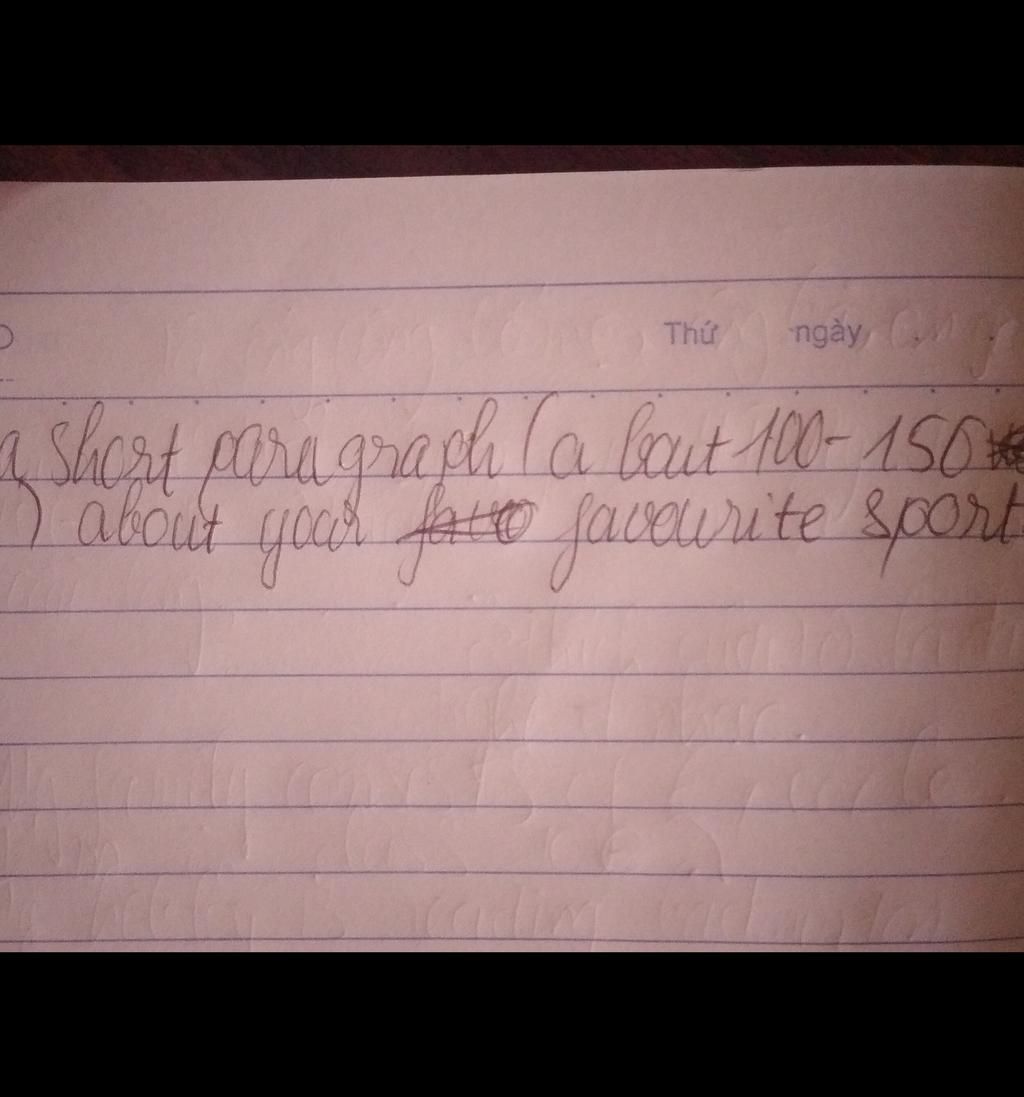 Thứ ngày
a short paragraph (a bout 100-150
) about your favourite sport